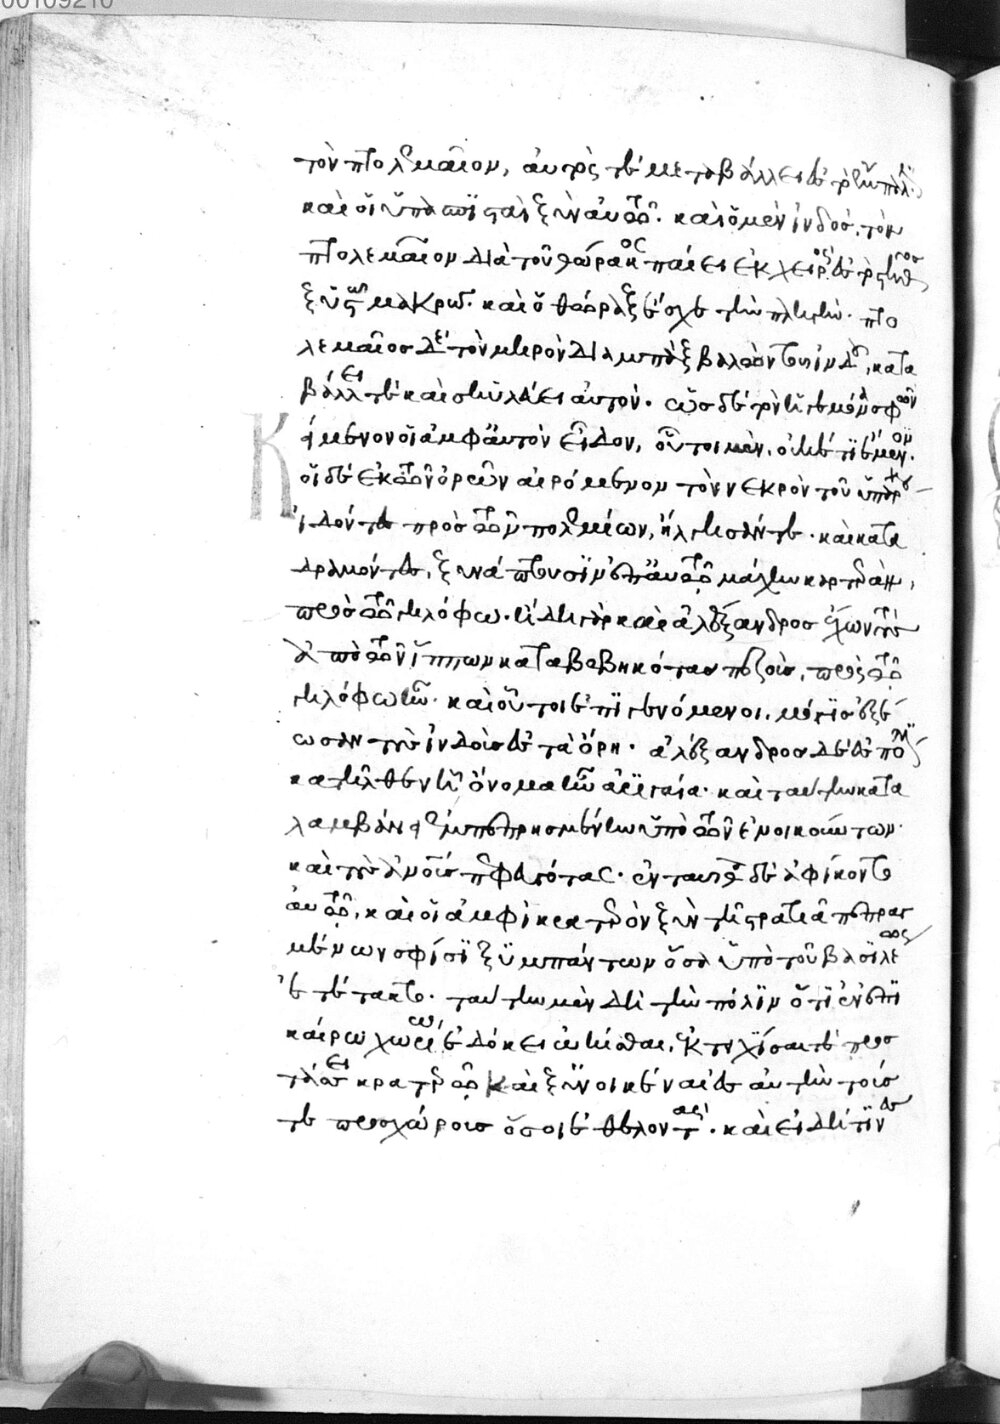 τὸν πτολεμαῖον, αὐτός τε μεταβάλλει ἐς τὸ ἔμπαλιν
καὶ οἱ ὑπασπισταὶ ξὺν αὐτῷ. καὶ ὁ μὲν ἰνδὸς, τὸν
πτολεμαῖον διὰ τοῦ θώρακος παίει ἐκ χειρὸς ἐς τὸ στῆθος
ξυστῷ μακρῷ. καὶ ὁ θώραξ ἔσχε τὴν πληγήν. πτο
λεμαῖος δὲ τὸν μηρὸν διαμπὰξ βαλὼν τοῦ ἰνδοῦ, κατα
βάλλει τε καὶ σκυλεύει αὐτόν. ὡς δὲ τὸν ἡγεμόνα σφῶν
κείμενον οἱ ἀμφ' αὐτὸν εἶδον, οὗτοι μὲν, οὐκέτι ἔμενον.
οἱ δὲ ἐκ τῶν ὀρῶν αἰρόμενον τὸν νεκρὸν τοῦ ὑπάρχου
ἰδόντες πρὸς τῶν πολεμίων, ἤλγησάν τε. καὶ κατα
δραμόντες, ξυνάπτουσιν ἐπ' αὐτῷ μάχην καρτερὰν,
πρὸς τῷ γηλόφω. ἤδη γὰρ καὶ ἀλέξανδρος ἔχων τοὺς
ἀπὸ τῶν ἵππων καταβεβηκότας πεζοὺς, πρὸς τῷ
γηλόφω ἦν. καὶ οὗτοι ἐπιγενόμενοι, μόγις ἐξέ
ωσαν τοὺς ἰνδοὺς ἐς τὰ ὄρη. ἀλέξανδρος δὲ ἐς πόλιν
κατῆλθεν ᾗ ὄνομα ἦν ἀριγαία. καὶ ταύτην κατα
λαμβάνει ἐμπεπρησμένην ὑπὸ τῶν ἐνοικούντων.
καὶ τοὺς ἀνθρώπους πεφευγότας. ἐνταῦθα δὲ ἀφίκοντο
αὐτῷ, καὶ οἱ ἀμφὶ κρατερὸν ξὺν τῇ στρατιᾷ πεπραγ
μένων σφίσι ξυμπάντων ὅσα ὑπὸ τοῦ βασιλέως
ἐτέτακτο. ταύτην μὲν δὴ τὴν πόλιν ὅτι ἐν ἐπι
καίρω χωρίω ἐδόκει ᾠκίσθαι, ἐκτειχίσαι τε προσ
τάσσει κρατερῷ καὶ ξυνοικίσαι ἐς αὐτὴν τούς
τε προσχώρους ὅσοι ἐθέλονται. καὶ εἰ δή τινες